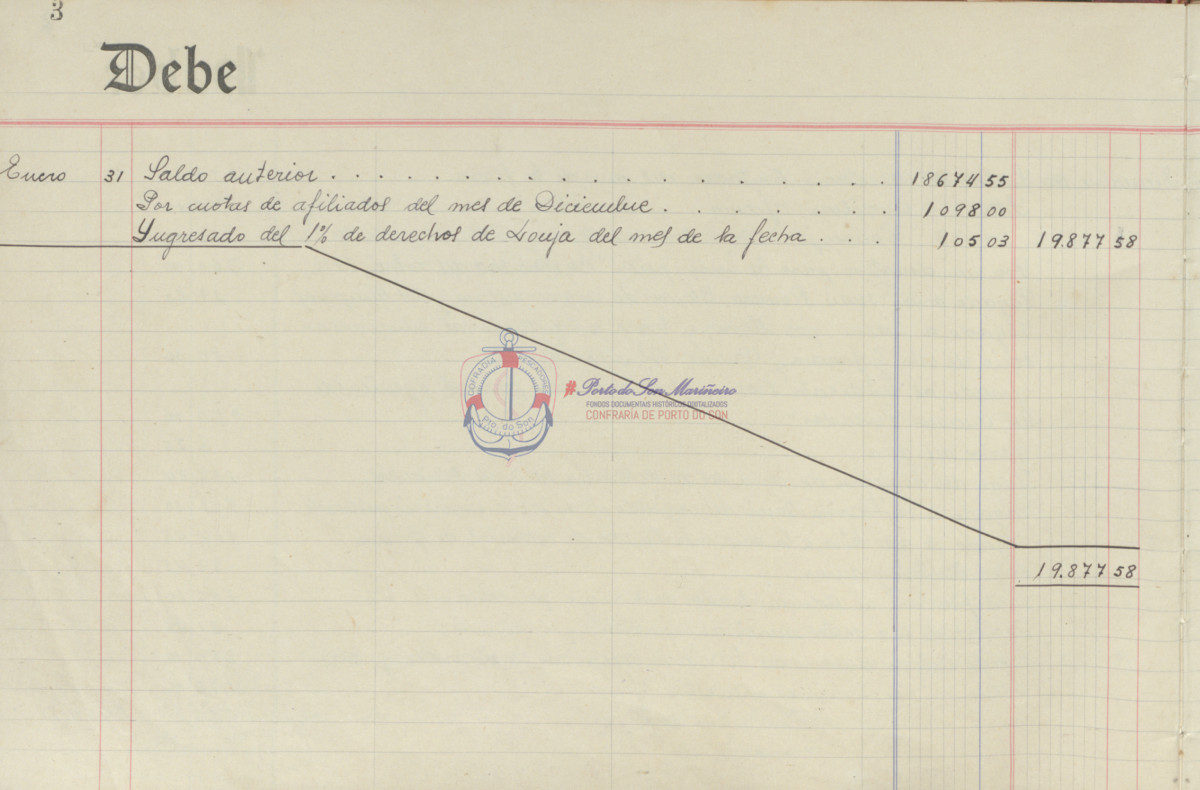 3
Debe
Enero 31 Saldo anterior . . . . . . . . . . . . . . . . 18674 55
Por cuotas de afiliados del mes de Diciembre . . . . . . . 1098 00
Yngresado del 1% de derechos de Lonja del mes de la fecha . . . 105 03 19.877 58
COFRADIA PESCADORES
Pto. do Son
#Porto do Son Mariñeiro
FONDOS DOCUMENTAIS HISTÓRICOS DIXITALIZADOS
CONFRARÍA DE PORTO DO SON
19.877 58